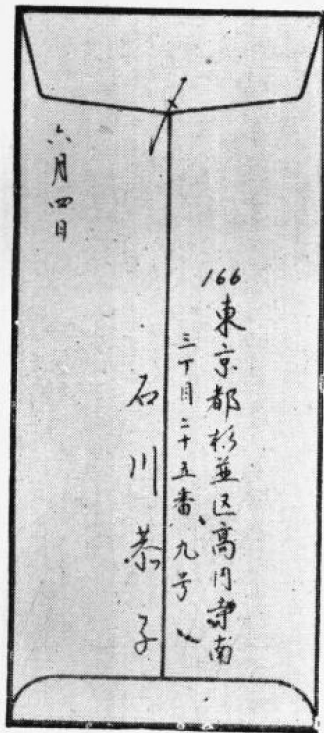 166 東京都杉並区高円寺南
三丁目二十五番、九号
石川恭子
六月四日